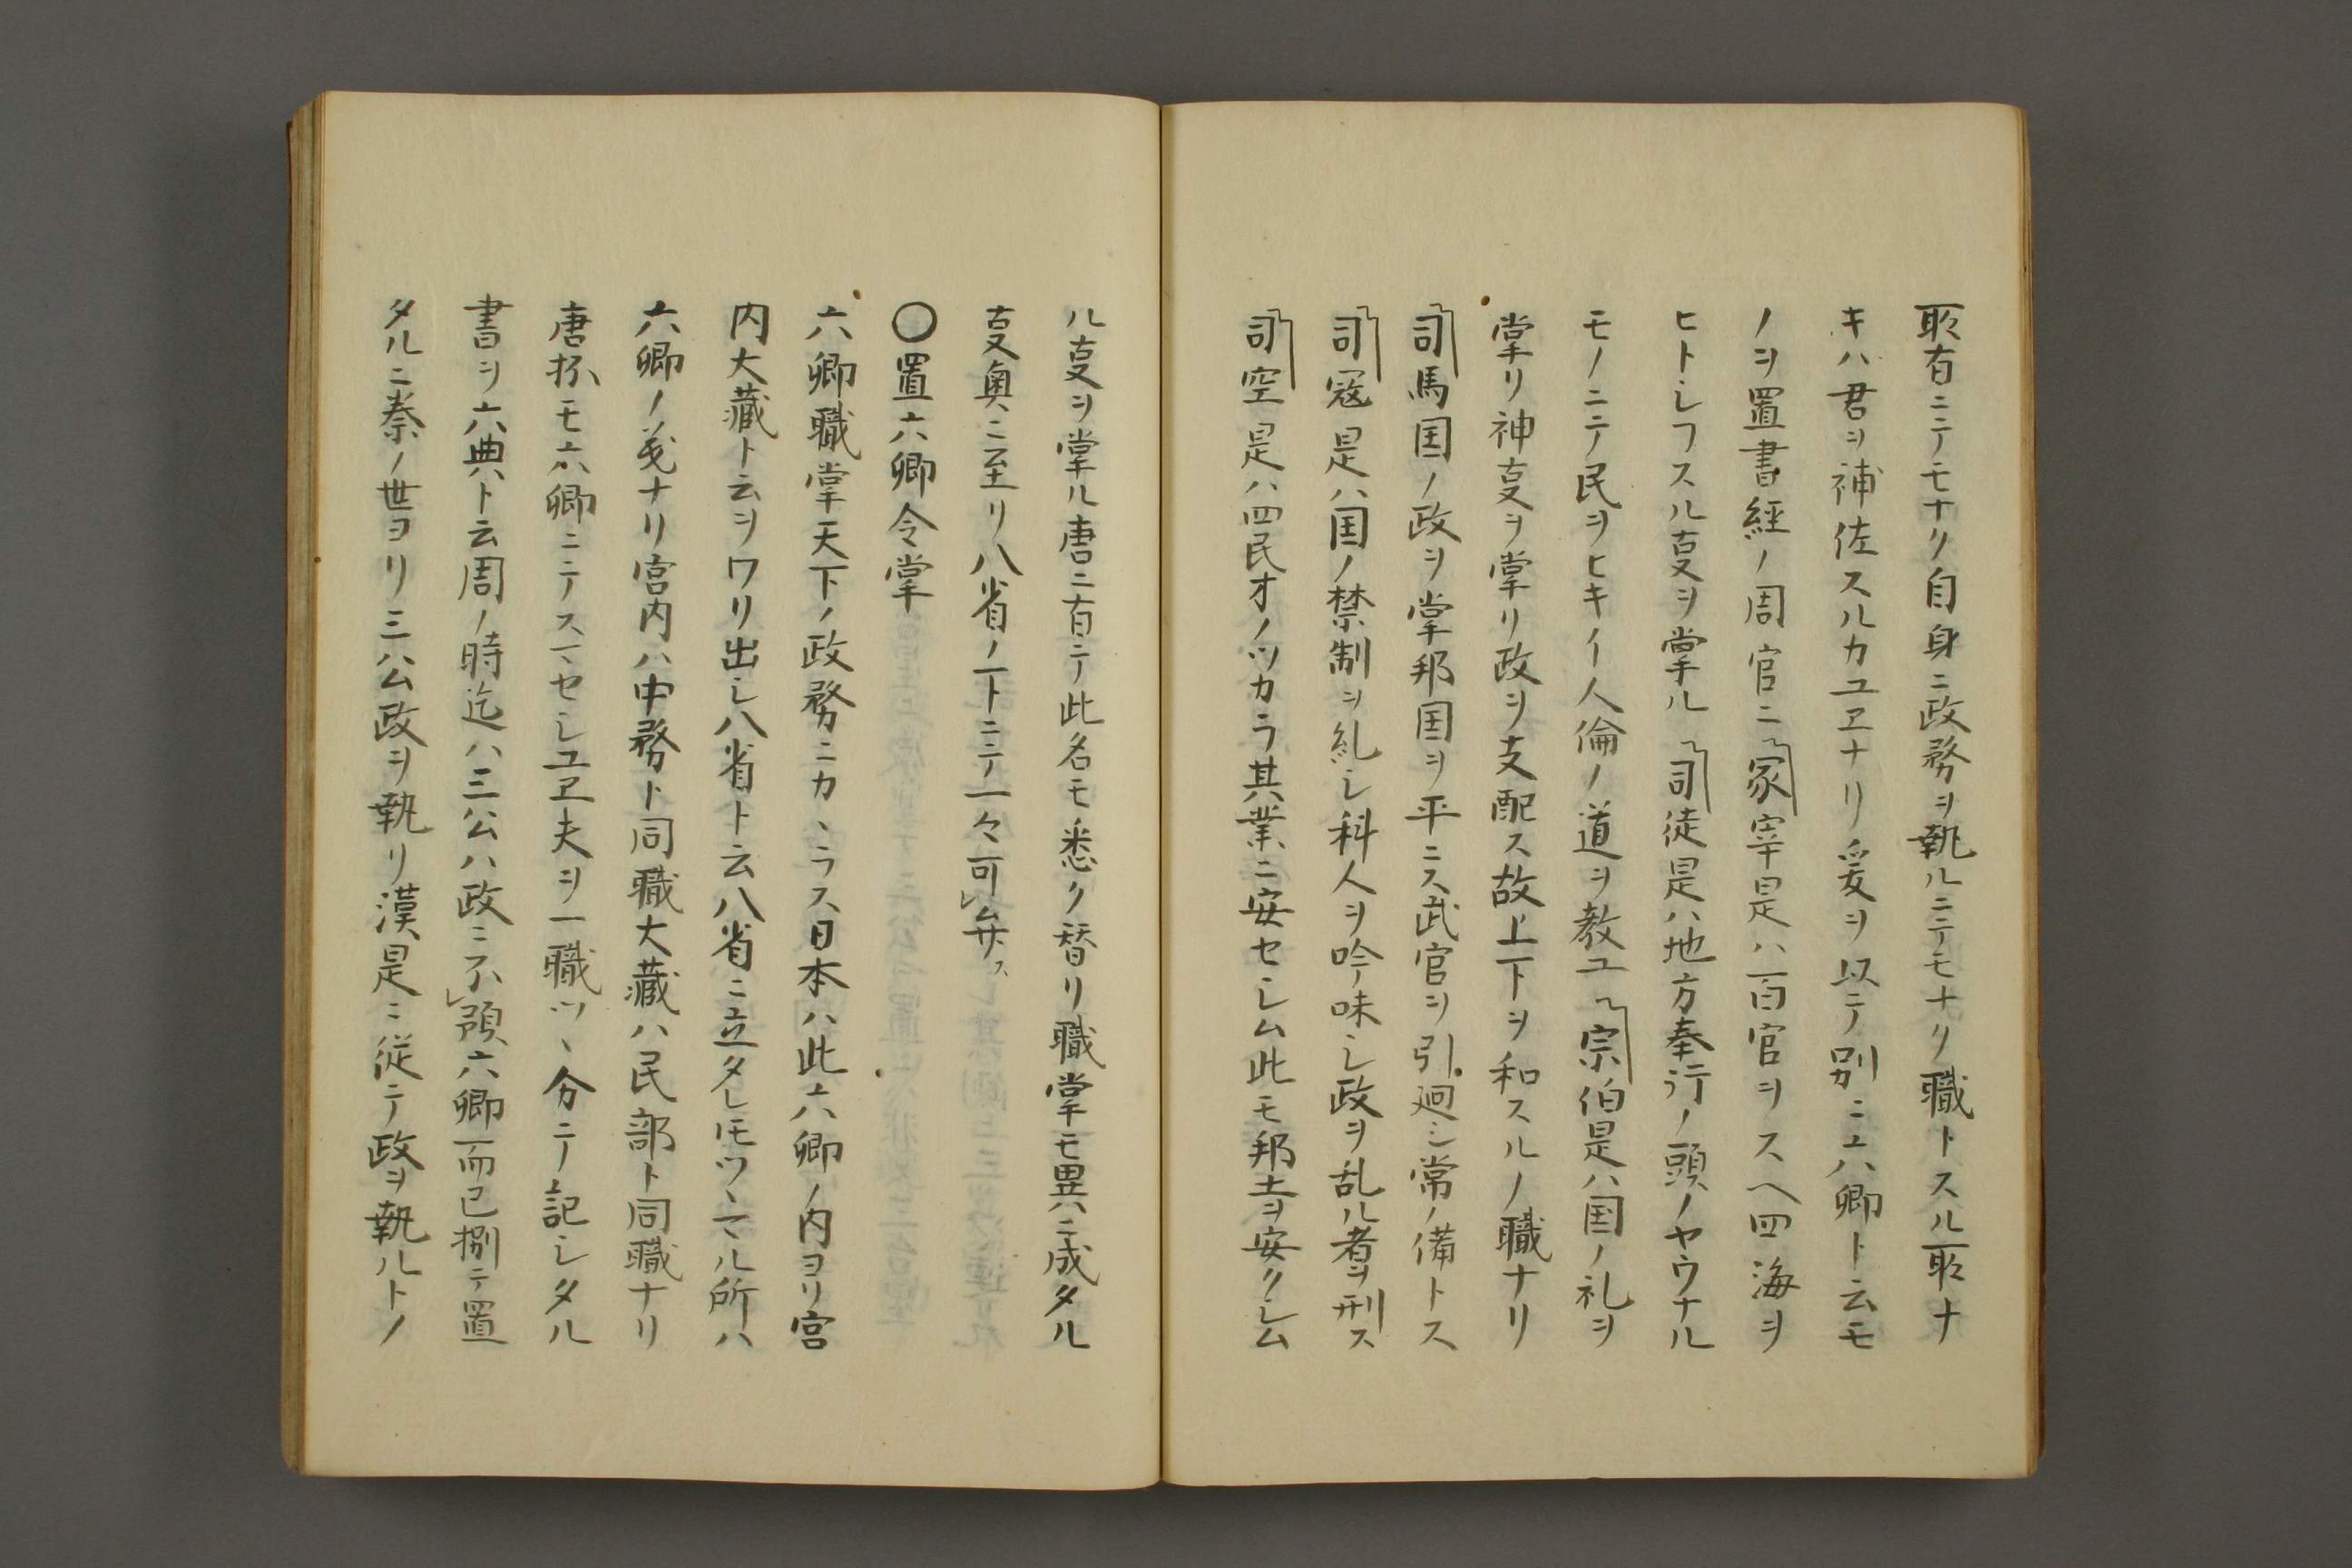 取有ニテモナク自身ニ政務ヲ執ルニテモナク職トスル取ナ
キハ君ヲ補佐スルカユヱナリ爰ヲ以テ別ニ六卿ト云モ
ノヲ置書経ノ周官ニ冢宰是ハ百官ヲスヘ四海ヲ
ヒトシフスル叓ヲ掌ル司徒是ハ地方奉行ノ頭ノヤウナル
モノニテ民ヲヒキイ人倫ノ道ヲ教ユ宗伯是ハ国ノ礼ヲ
掌リ神叓ヲ掌リ政ヲ支配ス故上下ヲ和スルノ職ナリ
司馬国ノ政ヲ掌邦国ヲ平ニス武官ヲ引廻シ常ノ備トス
司寇是ハ国ノ禁制ヲ糺シ科人ヲ吟味シ政ヲ乱ル者ヲ刑ス
司空是ハ四民オノツカラ其業ニ安セシム此モ邦土ヲ安クシム
ル叓ヲ掌ル唐ニ百テ此名モ悉ク替リ職掌モ異ニ成タル
叓奥ニ至リ八省ノ下ニテ一々可弁ス
〇置六卿令掌
六卿職掌天下ノ政務ニカヽラス日本ハ此六卿ノ内ヨリ宮
内大藏ト云ヲワリ出シ八省ト云八省ニ立タレ𪜈ツヽマル所ハ
六卿ノ義ナリ宮内ハ中務ト同職大藏ハ民部ト同職ナリ
唐抔モ六卿ニテスマセシユヱ夫ヲ一職ツヽ分テ記シタル
書ヲ六典ト云周ノ時迄ハ三公ハ政ニ不預六卿而已捌テ置
タルニ秦ノ世ヨリ三公政ヲ執リ漢是ニ従テ政ヲ執ルトノ